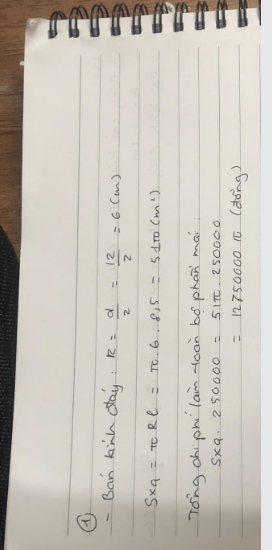 ①
- Bán kính đáy: R = d/2 = 12/2 = 6 (m)
Sxq = πRl = π.6.8,5 = 51π (m²)
Tổng chi phí làm toàn bộ phần mái.
Sxq. 250000 = 51π. 250000
= 12750000 π (đồng)